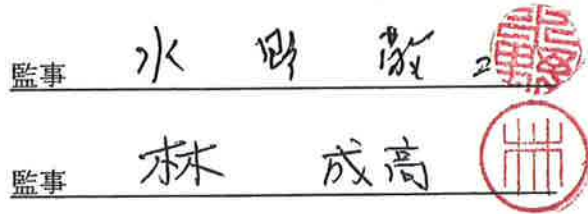 監事 水野 敬二
監事 林 成高
林